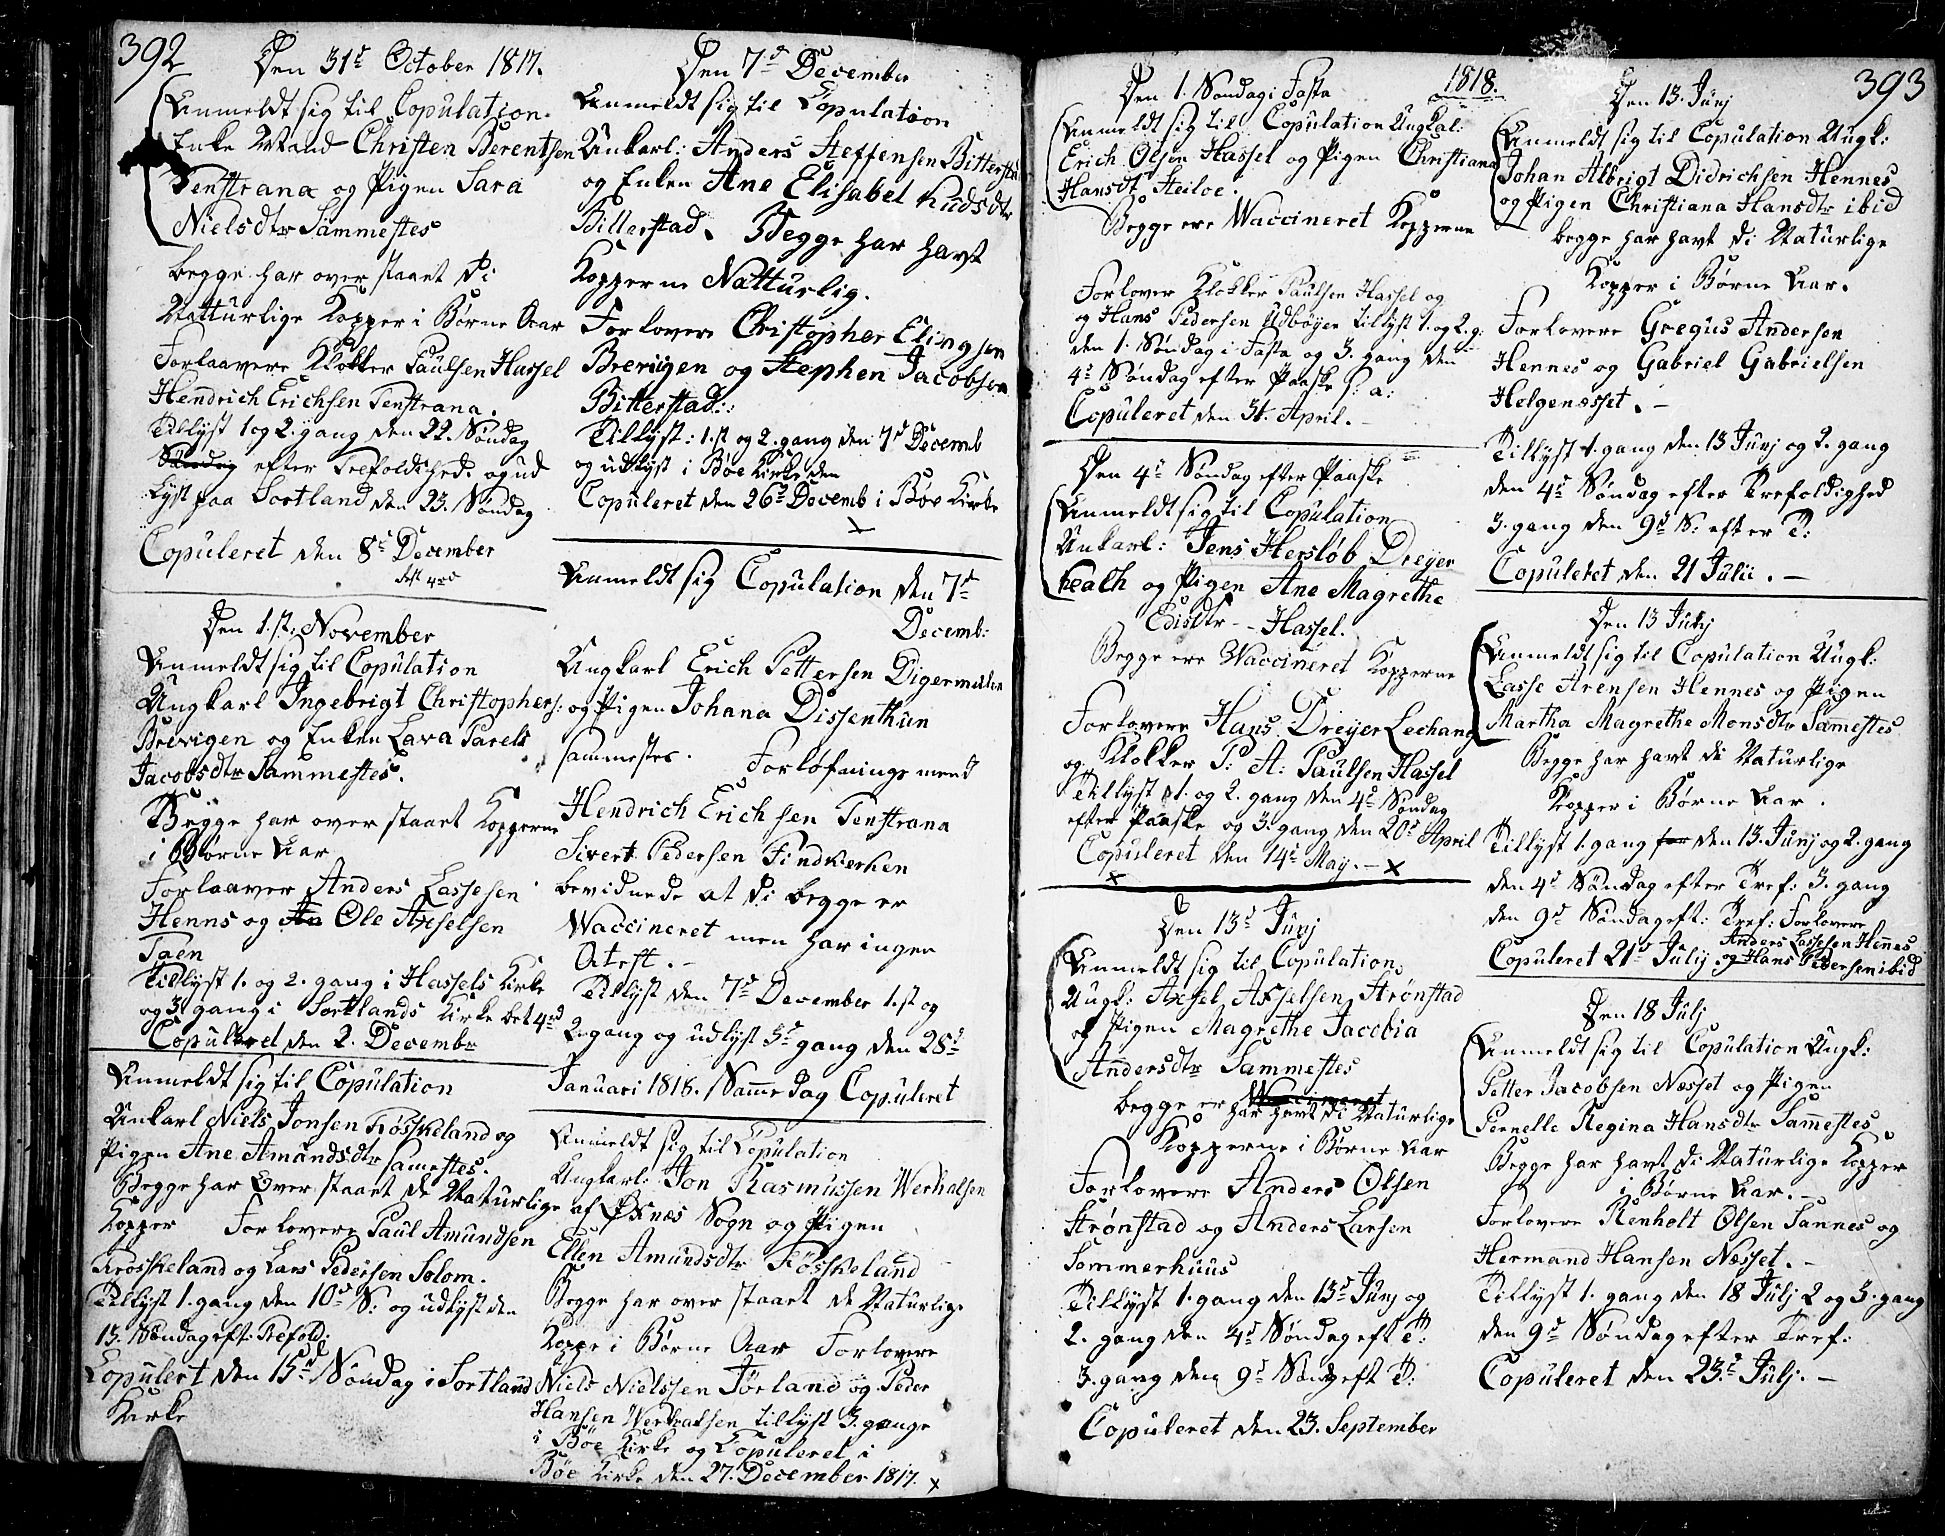 392
Den 31d October 1817.
Anmeldt sig til Copulation.
Enke Mand Christen Berentsen
Tenstrana og Pigen Sara
Nielsdtr Sammestes
begge har over staaet di
Natturlige Kopper i Børne Aar
Forlaavere Klokker Paulsen Hassel
Hendrich Erichsen Tenstrana.
Tillyst 1 og 2. gang den 22. Søndag
efter Trefoldighed. og ud
lyst paa Sortland den 23. Søndag
Copuleret den 8d December
Den 1.st. November
Anmeldt sig til Copulation
Ungkarl Ingebrigt Christophers:
Brevigen og Enken Lava Parels
Jacobsdtr Sammestes.
Begge har over staaet Kopperne
i Børne Aar
Forlaaver Anders Lassesen
Henns og An Ole Axselsen
Taen
Tillyst 1. og 2. gang i Hassels Kirke
og 3 gang i Sortlands Kirke bet 4
Copuleret den 2. Decembr
Anmeldt sig til Copulation
Unkarl Niels Jonsen Frøskeland og
Pigen Ane Amundsdtr Samestes.
Begge har Over staaet de Naturlige
Kopper Forlovere Paul Amundsen
Frøskeland og Lars Pedersen Solom.
Tillyst 1. gang den 10d S: og udlyst den
13. Søndag eft: Trefold:
Copulert den 15d Søndag i Sortland
Kirke
Den 7d December
Anmeldt sig til Copulation
Unkarl: Anders Steffensen Bitterstad
og Enken Ane Elisabet Kudsdtr
Bitterstad. Begge har havt
Kopperne Natturlig.
Forlovere Christopher Elingsen
Brevigen og Stephen Jacobsen
Bitterstad:
Tillyst: 1.st og 2. gang den 7d Decemb
og udlyst i Bøe Kirke den
Copuleret den 26d Decemb i Bøe Kirke
Anmeldt sig Copulation den 7d
Decemb:
Ungkarl Erich Pettersen Digermulen
og Pigen Johana Dissenthun
sammestes. Forlofnings mend
Hendrich Erichsen Tenstrana
Sivert Pedersen Findkierken
bevidnede at di begge er
Waccineret men har ingen
Atest.-
Tillyst den 7d December 1.st og
2. gang og udlyst 3d gang den 28d
Januari 1818. Samme dag Copuleret
Anmeldt sig til Copulation
Ungkarl: Jon Rasmussen Werhalsen
af Øxnæs Sogn og Pigen
Ellen Amundsdtr Frøskeland
Begge har over staaet de Naturlige
Koppe i Børne Aar Forlovere
Niels Nielssen Jørland og Peder
Hansen Werhalsen tillyst 3. gange
i Bøe Kirke og Copuleret i
Bøe Kirke den 27. December 1817.
1818.
393
Den 1. Søndag i Fasta
Anmeldt sig til Copulation Ungkal:
Erich Olsen Hassel og Pigen Christiana
Hansdt Steiloe.
Begge ere Waccineret Kopperne
Forlover Klokker Paulsen Hassel og
og Hans Pedersen Udbøyer tillyst 1. og 2. g:
den 1. Søndag i Fasta og 3. gang den
4d Søndag efter Paaske S: a:
Copuleret den 31. April.-
Den 4d Søndag efter Paaske
Anmeldt sig til Copulation
Unkarl: Jens Hersløb Dreyer
Heath og Pigen Ane Magrethe
Edisdtr - - Hassel.
Begge ere Waccineret Kopperne
Forlovere Hans Dreyer Lechang
og Klokker P: A: Paulsen Hassel
Tillyst 1. og 2. gang den 4d Søndag
efter Paaske og 3. gang den 20d April
Copuleret den 14d May.-
Den 13d Junj
Anmeldt sig til Copulation.
Ungk: Axsel Axselsen Strønstad
og Pigen Magrethe Jacobia
Andersdtr Sammestes
begge er Waccineret
har havt di Naturlige
Kopperne i Børne Aar
Forlovere Anders Olsen
Strønstad og Anders Larsen
Sommerhuus
Tillyst 1. gang den 13d Junj og
2. gang den 4d Søndag eft T:
3. gang den 9d Søndg eft T:
Copuleret den 23. September
Den 13. Junj
Anmeldt sig til Copulation Ungk:
Johan Albrigt Didrichsen Hennes
og Pigen Christiana Hansdtr ibid
begge har havt di Naturlige
Kopper i Børne Aar.
Forlovere Gregus Andersen
Hennes og Gabriel Gabrielsen
Helgenæsset.-
Tillyst 1. gang den 13 Junj og 2. gang
den 4d Søndag efter Trefoldighed
3. gang den 9d S: efter T:
Copuleret den 21 Julii.-
Den 13 Junj
Anmeldt sig til Copulation Ungk:
Lasse Arensen Hennes og Pigen
Martha Magrethe Monsdtr Samestes
Begge har havt di Naturlige
Kopper i Børne Aar.
Tillyst 1. gang for den 13. Junj og 2. gang
den 4d Søndag efter Tref: 3. gang
den 9d Søndag eft: Tref: Forlovere
Anders Lassesen Hennes
Copuleret 21d Julij og Hans Pedersen ibid
Den 18 Julj
Anmeldt sig til Copulation Ungk:
Petter Jacobsen Nesset og Pigen
Pernelle Regina Hansdtr Samestes
Begge har havt di Naturlige Kopper
i Børne Aar.-
Forlovere Renholt Olsen Sannes og
Hermand Hansen Nesset.-
Tillyst 1. gang den 18 Julj 2 og 3. gang
den 9d Søndag efter Tref:
Copuleret den 23d Julj.-